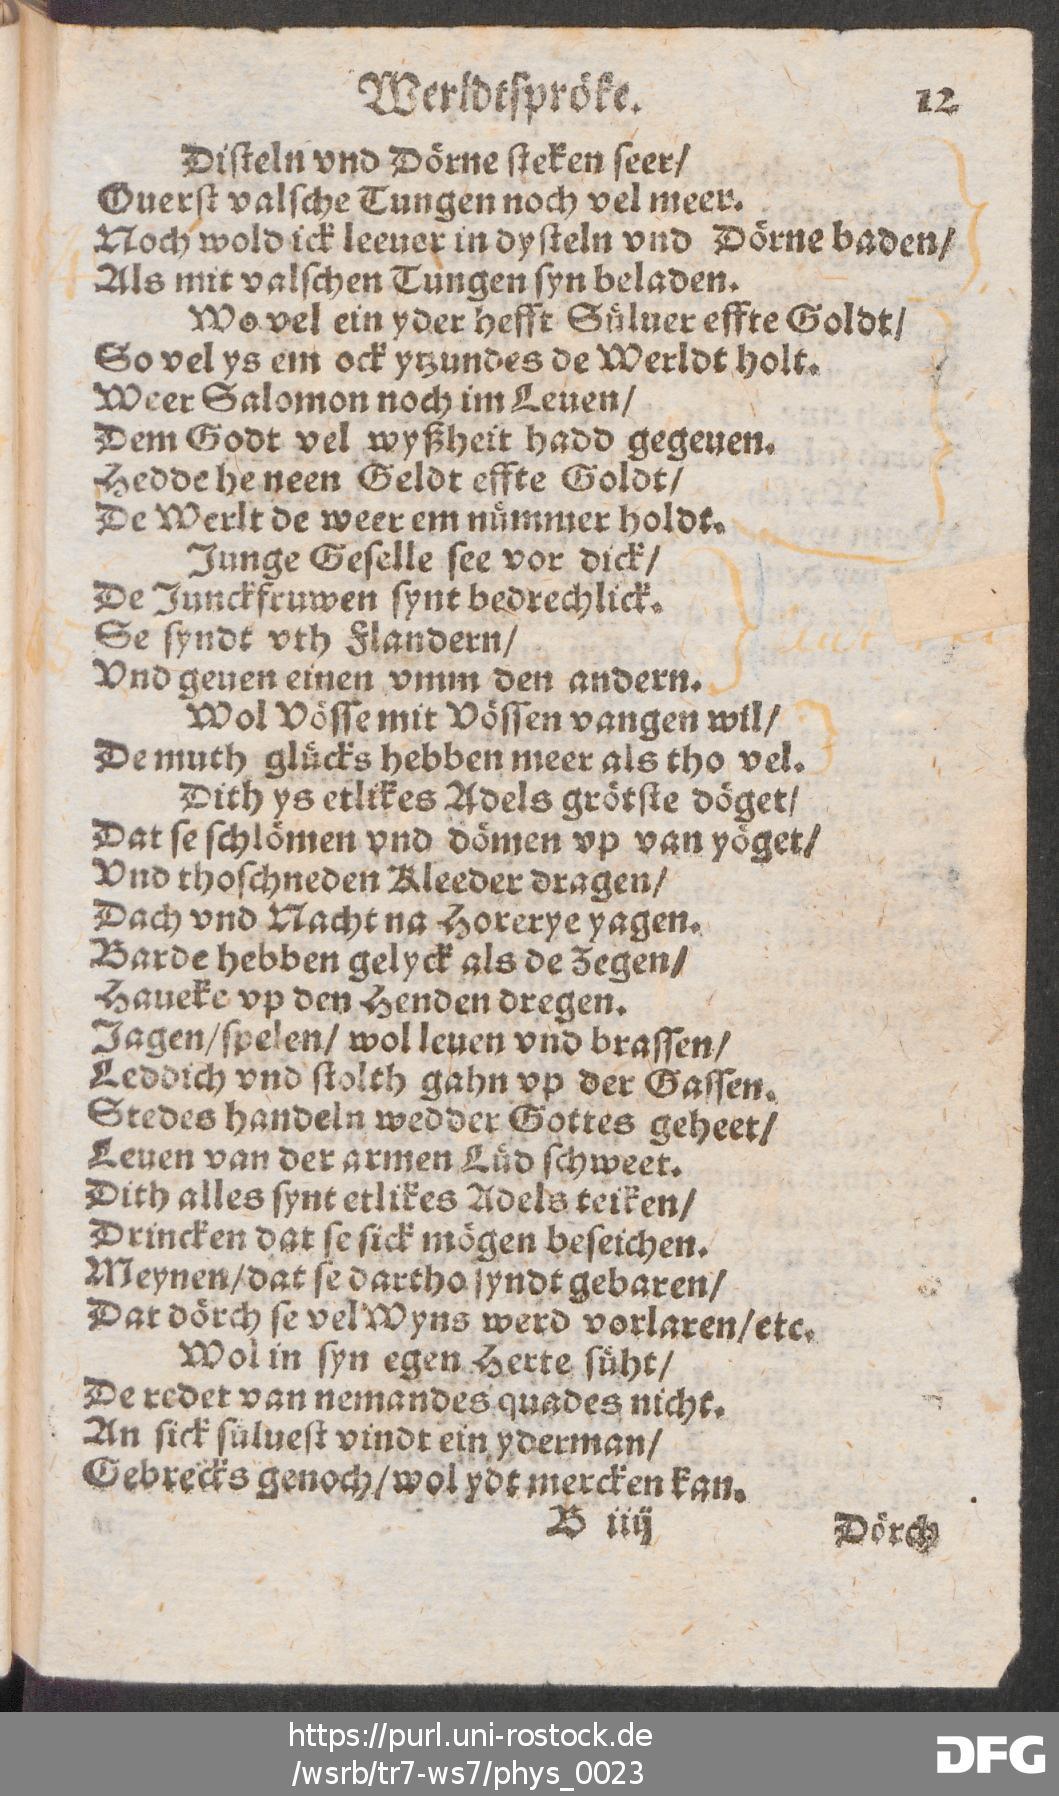 Werldtspröke. 12
Disteln vnd Dörne steken seer/
Ouerst valsche Tungen noch vel meer.
Noch wold ick leeuer in dysteln vnd Dörne baden/
Als mit valschen Tungen syn beladen.
Wo vel ein yder hefft Süluer effte Goldt/
So vel ys em ock ytzundes de Werldt holt.
Weer Salomon noch im Leuen/
Dem Godt vel wyßheit hadd gegeuen.
Hedde he neen Geldt effte Goldt/
De Werlt de weer em nümmer holdt.
Junge Geselle see vor dick/
De Junckfruwen synt bedrechlick.
Se syndt vth Flandern/
Vnd geuen einen vmm den andern.
Wol Vösse mit Vössen vangen wil/
De muth glücks hebben meer als tho vel.
Dith ys etlikes Adels grötste döget/
Dat se schlömen vnd dömen vp van yöget/
Vnd thoschneden Kleeder dragen/
Dach vnd Nacht na Horerye yagen.
Barde hebben gelyck als de Zegen/
Haueke vp den Henden dregen.
Jagen/spelen/ wol leuen vnd brassen/
Leddich vnd stolth gahn vp der Gassen.
Stedes handeln wedder Gottes geheet/
Leuen van der armen Lüd schweet.
Dith alles synt etlikes Adels teiken/
Drincken dat se sick mögen beseichen.
Meynen/dat se dartho syndt gebaren/
Dat dörch se vel Wyns werd vorlaren/etc.
Wol in syn egen Herte süht/
De redet van nemandes quades nicht.
An sick süluest vindt ein yderman/
Gebrecks genoch/wol ydt mercken kan.
B iiij Dörch
https://purl.uni-rostock.de
/wsrb/tr7-ws7/phys_0023
DFG